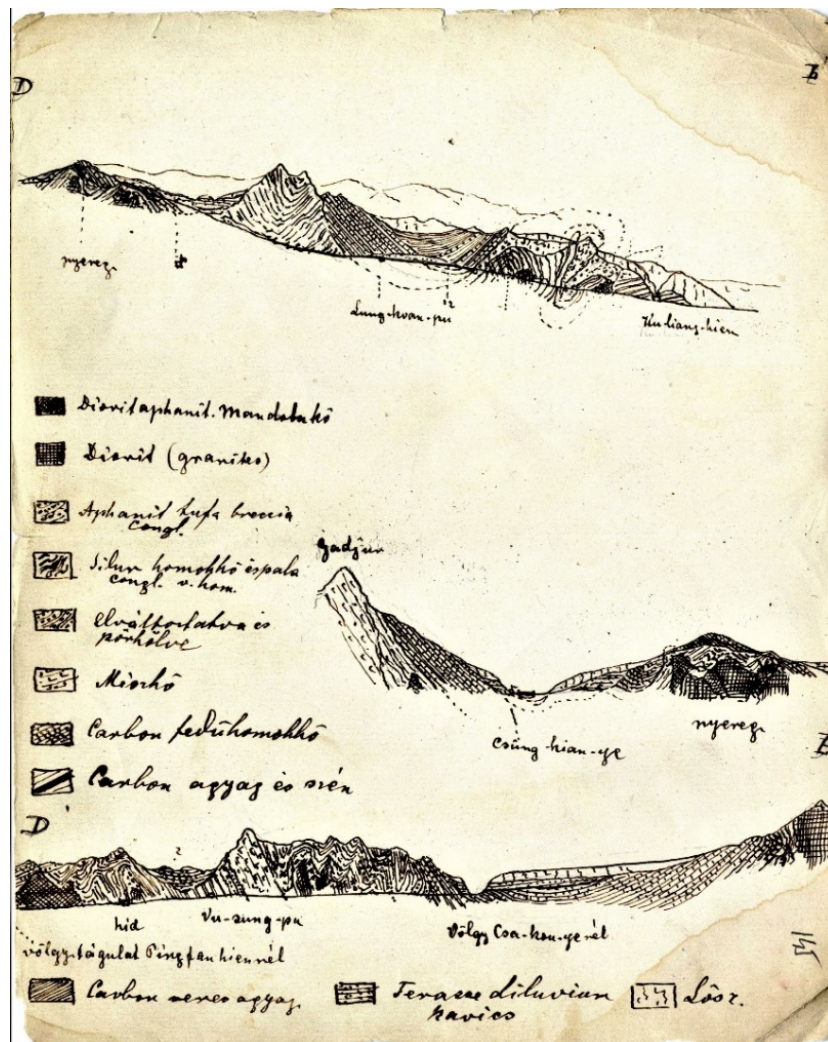 D
nyereg
Lung-kvan-pu
Ku-liang-hien
Dioritaphanit. Mandolakő
Diorit (gránitos)
Aphanit tufa breccia
congl.
Silur homokkő és pala
congl. v. hom.
Elváltoztatva és
pörkölve
Mészkő
Carbon fedühomokkő
Carbon agyag és szén
Gadjur
Csung-hian-ye
nyereg
D'
hid
Vu-sung-pu
Völgy Csa-kou-ye nél
völgy-tágulat Pingfanhiennél
Carbon veres agyag
Terasse diluvium
kavics
Lösz.